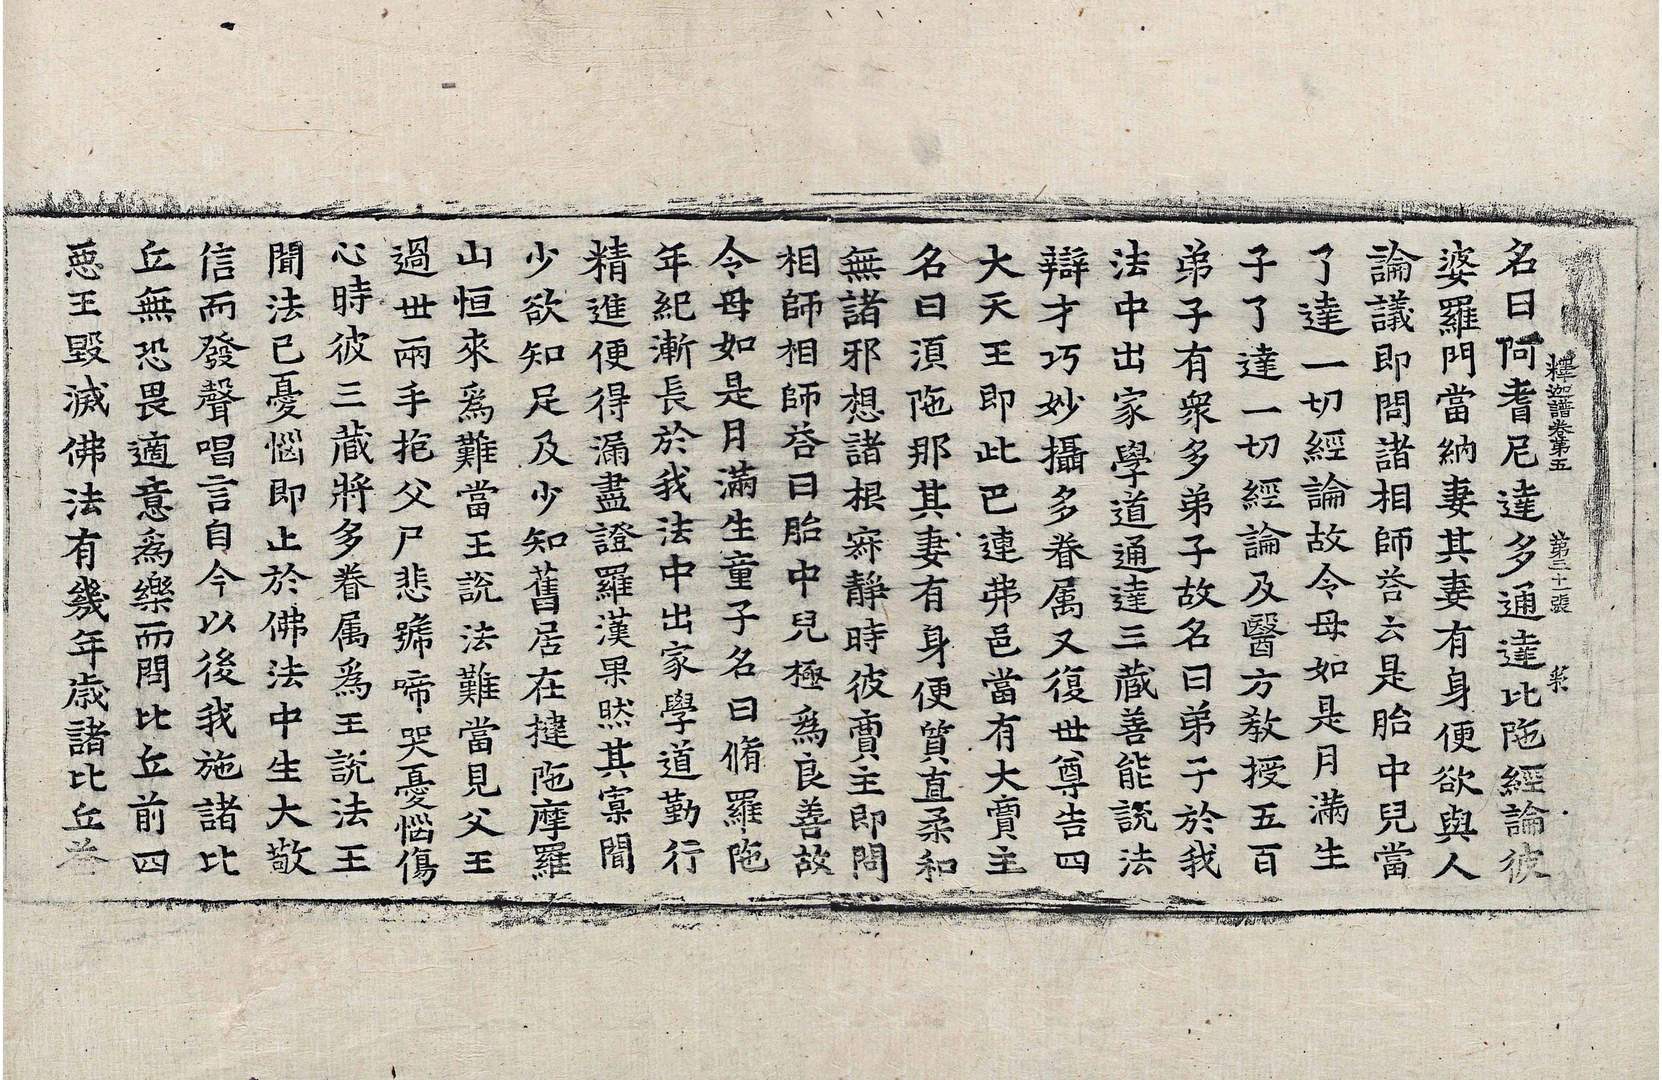 釋迦譜卷第五 第三十一張
名曰阿耆尼達多通達比陁經論彼
婆羅門當納妻其妻有身便欲與人
論議即問諸相師荅云是胎中兒當
了達一切經論故令母如是月滿生
子了達一切經論及醫方教授五百
弟子有衆多弟子故名曰弟子於我
法中出家學道通達三藏善能說法
辯才巧妙攝多眷属又復世尊告四
大天王即此巴連弗邑當有大賣主
名曰湏陁那其妻有身便質直柔和
無諸邪想諸根寂靜時彼賣主即問
相師相師荅曰胎中兒極為良善故
令母如是月滿生童子名曰脩羅陁
年紀漸長於我法中出家學道勤行
精進便得漏盡證羅漢果然其寡聞
少欲知足及少知舊居在揵陁摩羅
山恒來為難當王說法難當見父王
過世兩手抱父尸悲號啼哭憂惱傷
心時彼三藏將多眷属為王說法王
聞法已憂惱即止於佛法中生大敬
信而發聲唱言自今以後我施諸比
丘無恐畏適意為樂而問比丘前四
惡王毀滅佛法有幾年歲諸比丘荅